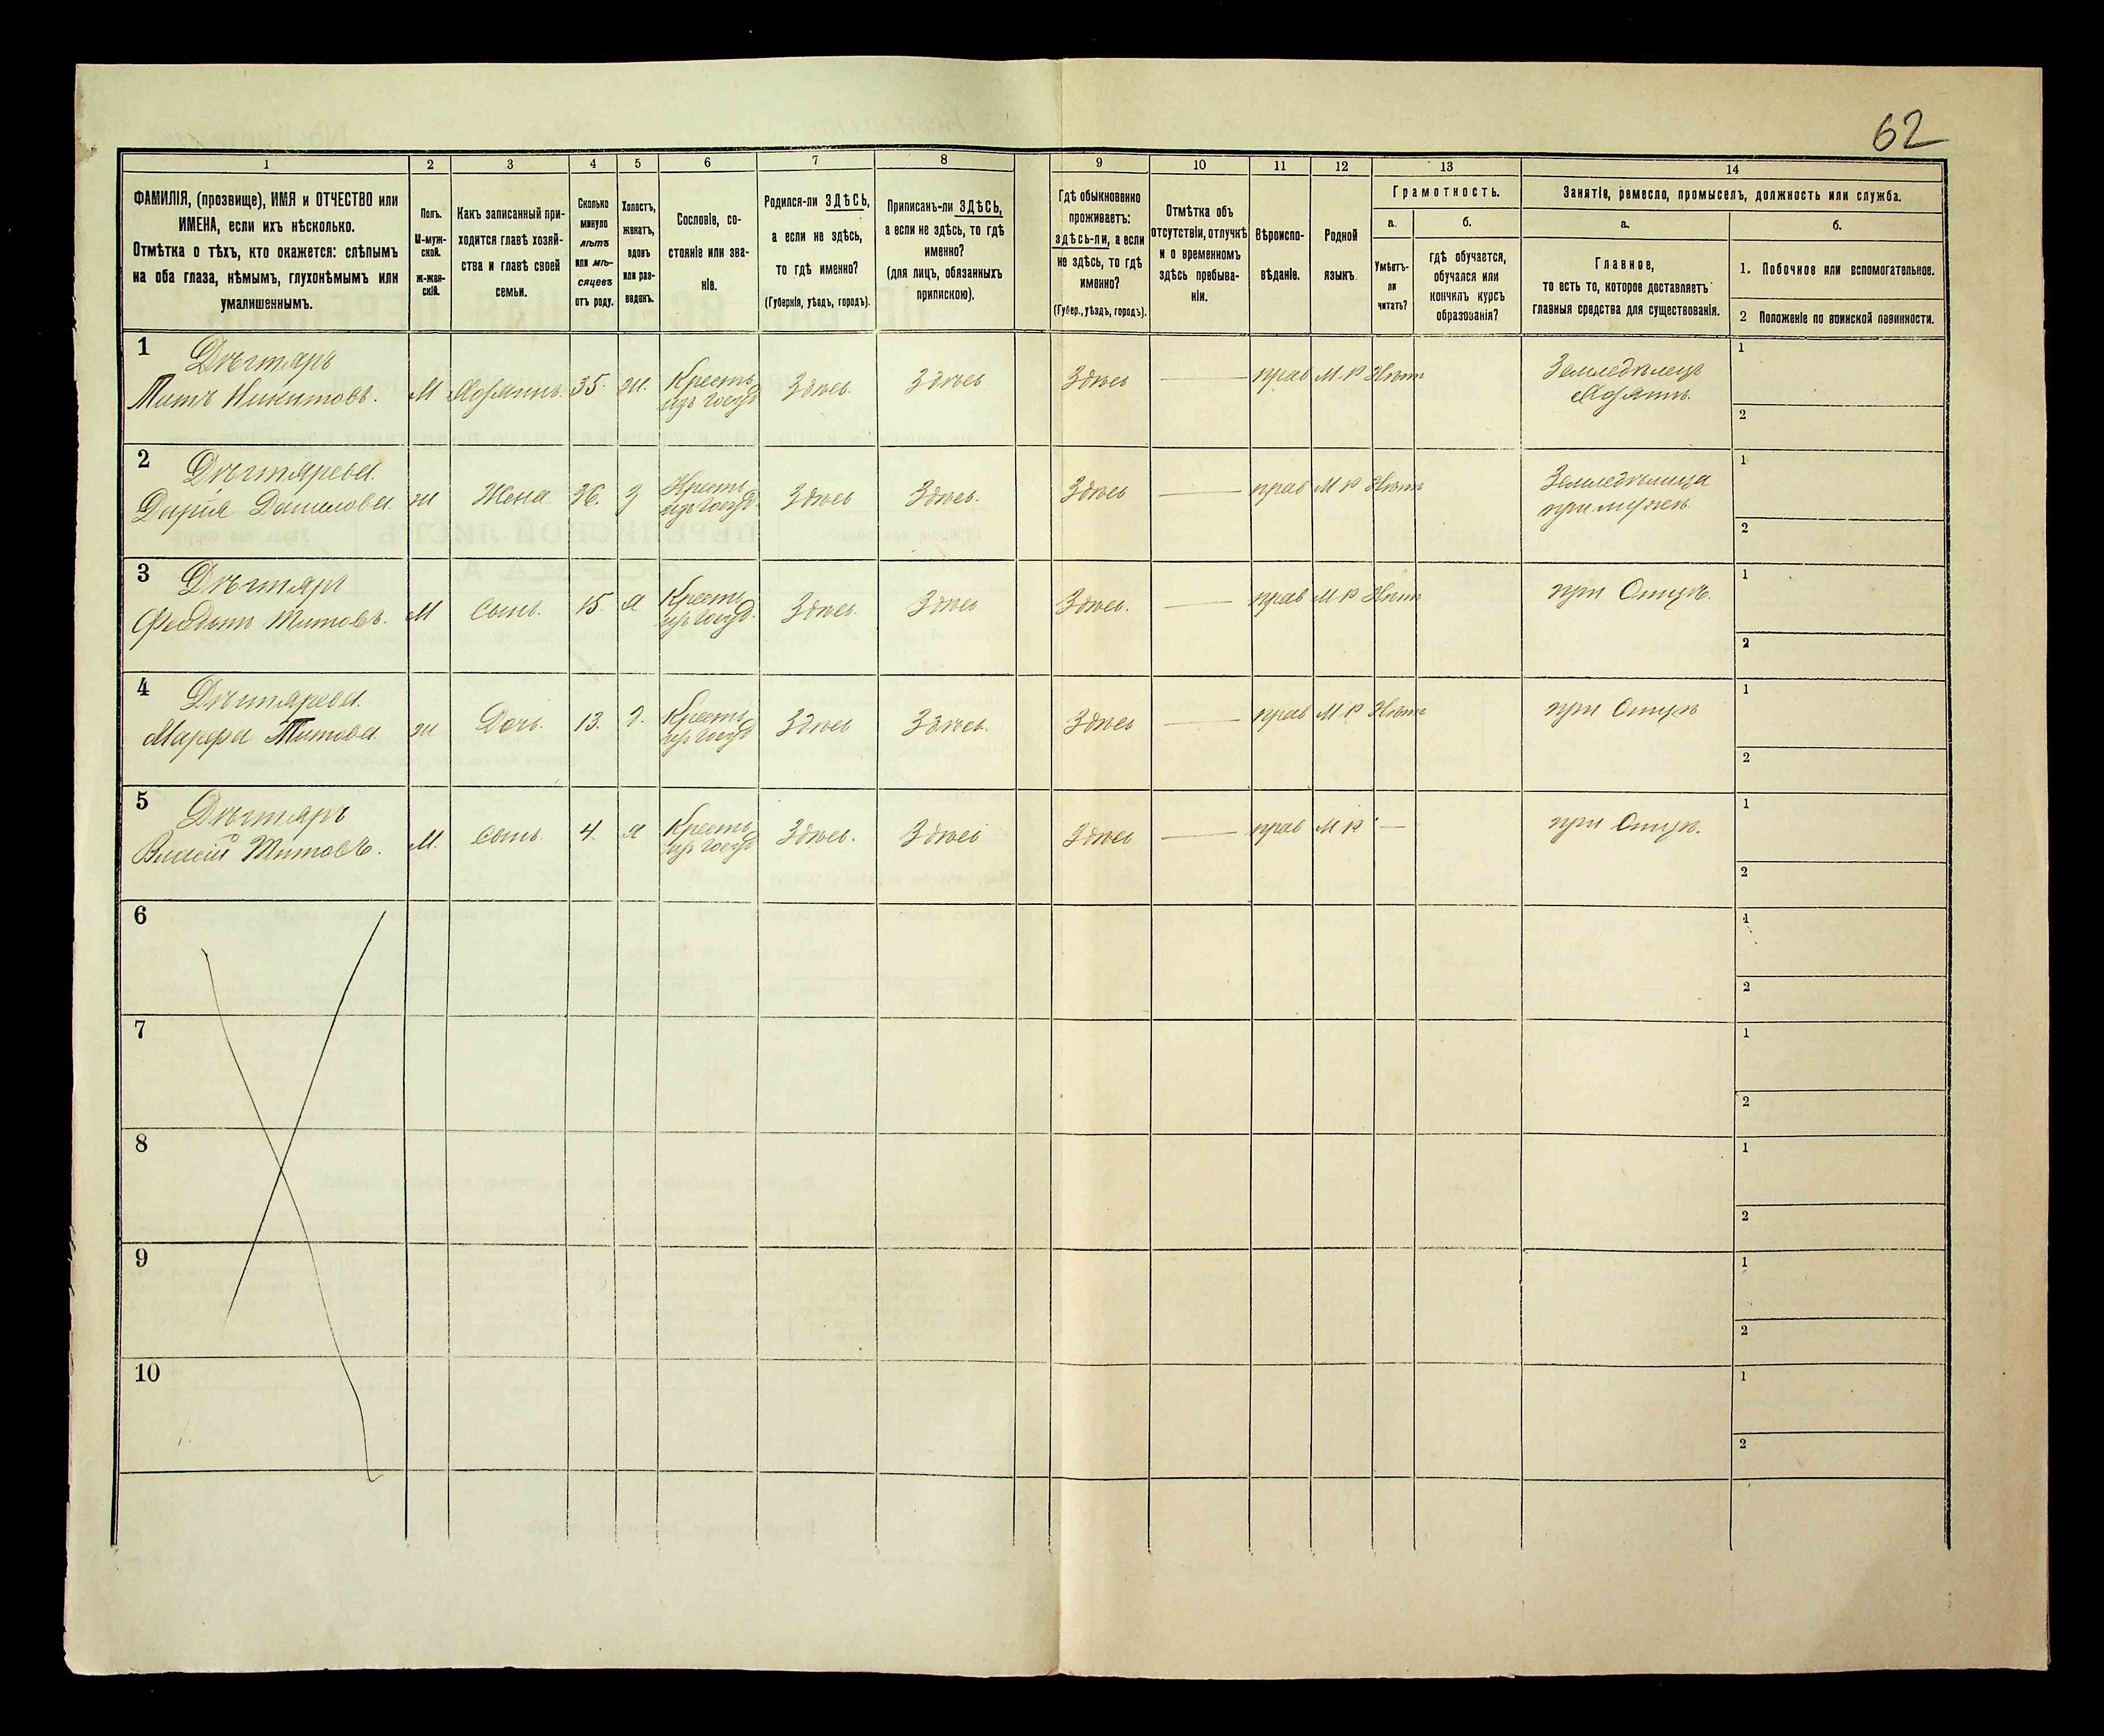 62
1
2
3
4
5
6
7
8
9
10
11
12
13
14
ФАМИЛІЯ, (прозвище), ИМЯ и ОТЧЕСТВО или
ИМЕНА, если ихъ нѣсколько.
Отмѣтка о тѣхъ, кто окажется: слѣпымъ
на оба глаза, нѣмымъ, глухонѣмымъ или
умалишеннымъ.
Полъ.
М-муж-
ской.
ж-жен-
скій.
Какъ записанный при-
ходится главѣ хозяй-
ства и главѣ своей
семьи.
Сколько
минуло
лѣтъ
или мѣ-
сяцевъ
отъ роду.
Холостъ,
женатъ,
вдовъ
или раз-
веденъ.
Сословіе, со-
стояніе или зва-
ніе.
Родился-ли ЗДѢСЬ,
а если не здѣсь,
то гдѣ именно?
(Губернія, уѣздъ, городъ).
Приписанъ-ли ЗДѢСЬ,
а если не здѣсь, то гдѣ
именно?
(для лицъ, обязанныхъ
припискою).
Гдѣ обыкновенно
проживаетъ:
здѣсь-ли, а если
не здѣсь, то гдѣ
именно?
(Губер., уѣздъ, городъ).
Отмѣтка объ
отсутствіи, отлучкѣ
и о временномъ
здѣсь пребыва-
ніи.
Вѣроиспо-
вѣданіе.
Родной
языкъ.
Грамотность.
а.
Умѣетъ-
ли
читать?
б.
гдѣ обучается,
обучался или
кончилъ курсъ
образованія?
Занятія, ремесло, промыселъ, должность или служба.
а.
Главное,
то есть то, которое доставляетъ
главныя средства для существованія.
б.
1. Побочное или вспомогательное.
2 Положеніе по воинской повинности.
1 Дѣгтярь
Титъ Никитовъ. М Хозяинъ. 35. ж. Кресть. Здѣсь. Здѣсь Здѣсь — прав М Р Нѣтъ Землѣделецъ 1
изъ госуд Хозяинъ. 2
2 Дѣгтярева.
Дарія Данилова ж Жена 36. З Кресть. Здѣсь Здѣсь. Здѣсь — прав М Р Нѣтъ Земледѣлица 1
изъ госуд. при мужѣ. 2
3 Дѣгтярь
Титовъ. М Сынъ. 15. Х Кресть. Здѣсь. Здѣсь Здѣсь. — прав М Р Нѣтъ при Отцѣ. 1
изъ госуд. 2
4 Дѣгтярева.
Марфа Титова ж Дочь. 13. Д. Кресть. Здѣсь Здѣсь. Здѣсь — прав М Р Нѣтъ при Отцѣ 1
изъ госуд 2
5 Дѣгтярь
Власій Титовъ. М. Сынъ. 4. Х Кресть. Здѣсь. Здѣсь Здѣсь — прав М Р — при Отцѣ. 1
изъ госуд 2
6 1
2
7 1
2
8 1
2
9 1
2
10 1
2